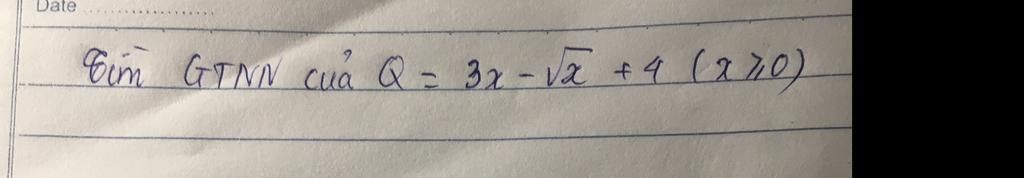 Date ....................
Tìm GTNN của Q = 3x - √x + 4 (x ⩾ 0)